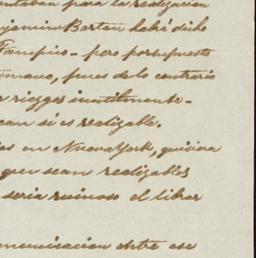 ntaban para la realizacion
njamin Barton habrá dicho
Tampico - pero por supuesto
mano, pues de lo contrario
riezgos inutilmente -
ean si es realizable.
es en Nueva York, quisiera
que sean realizables
seria ruinoso el librar
omunicacion entre ese